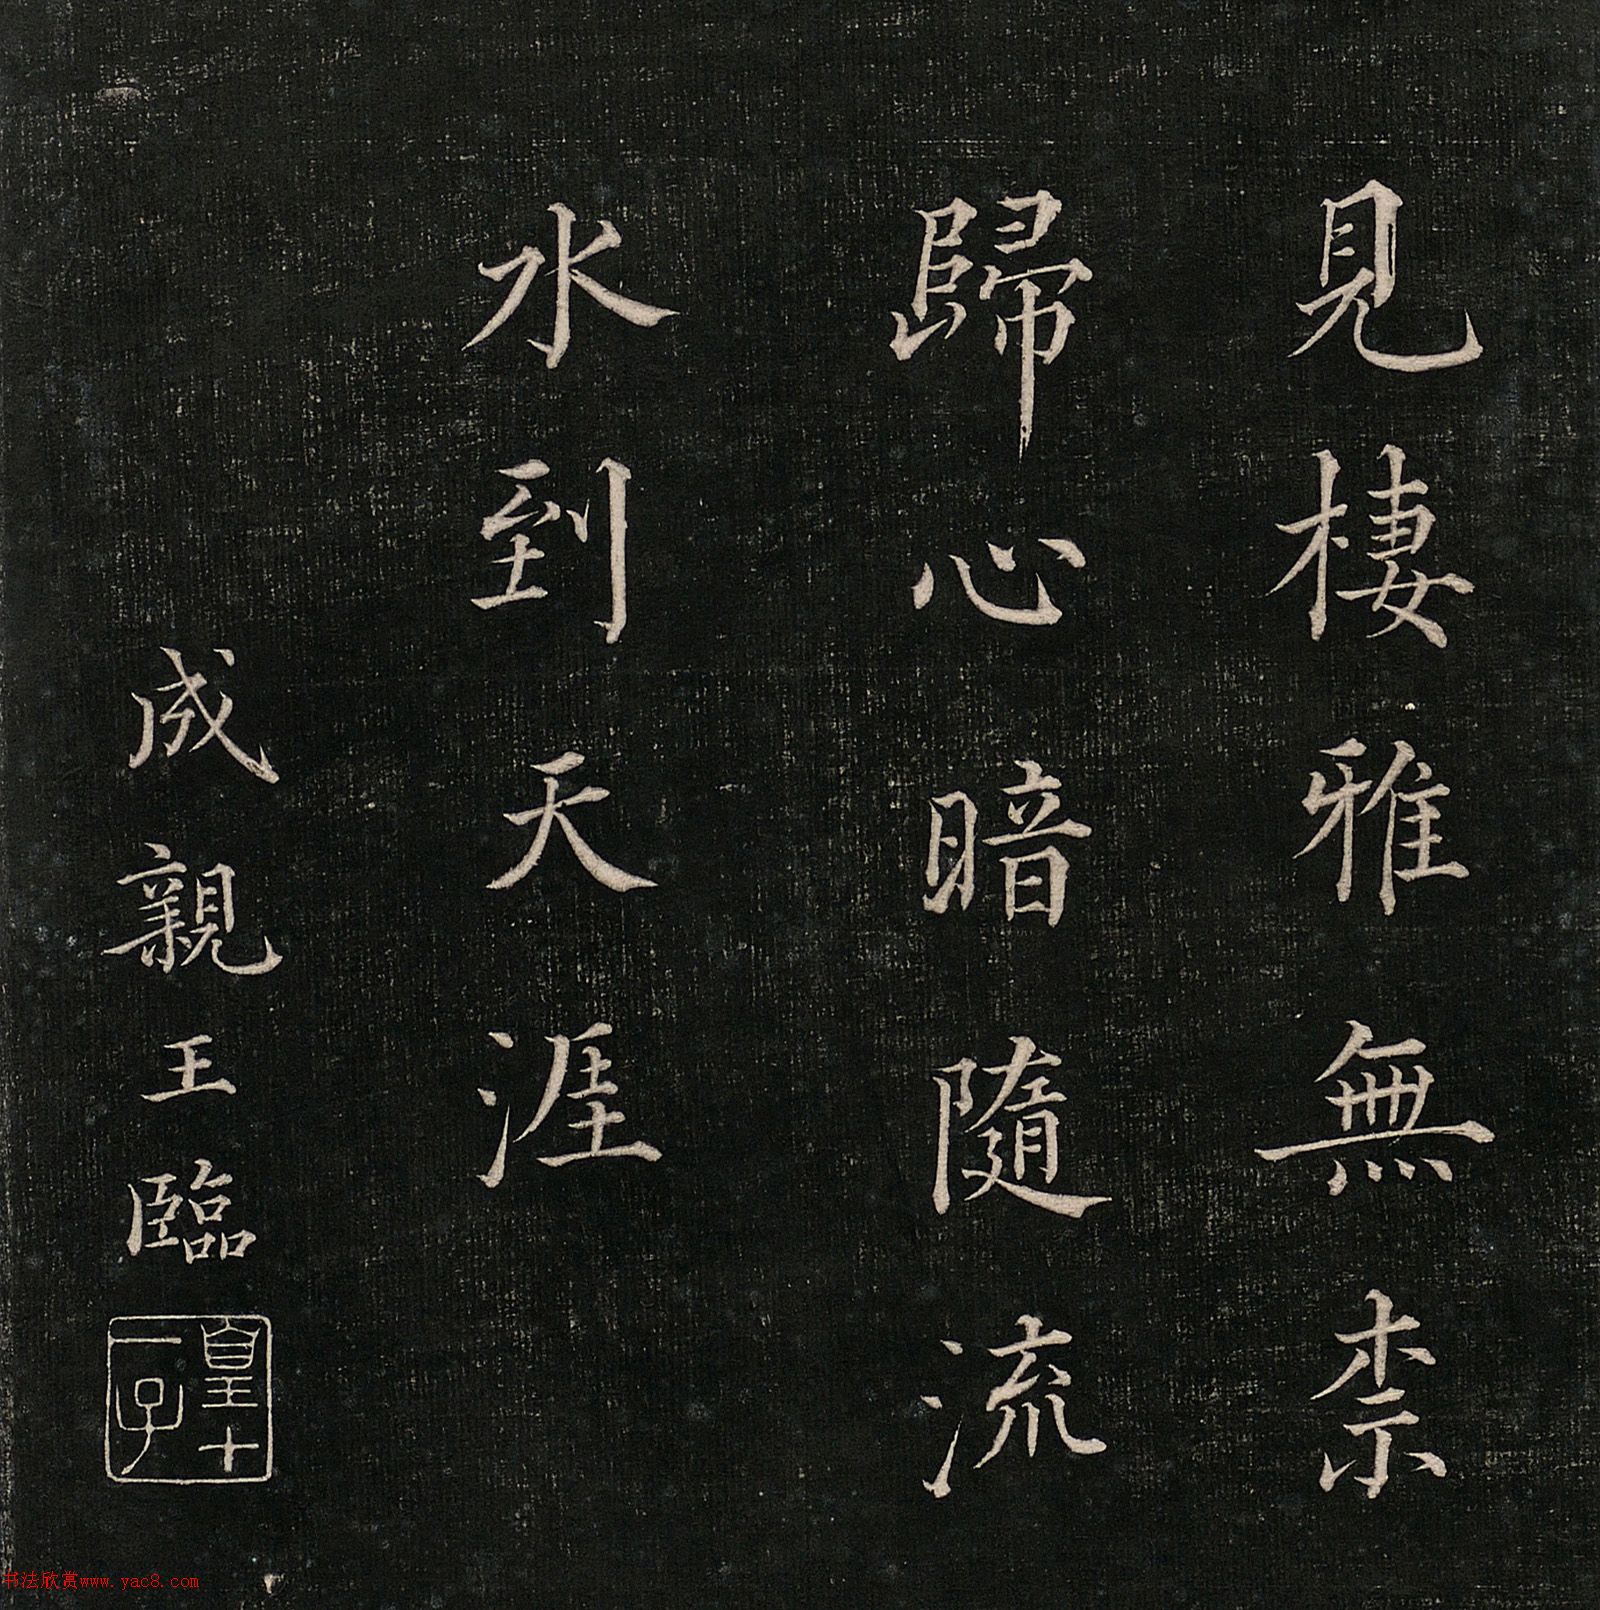 見棲雅無柰
歸心暗隨流
水到天涯
成親王臨
皇十
一子
书法欣赏www.yac8.com